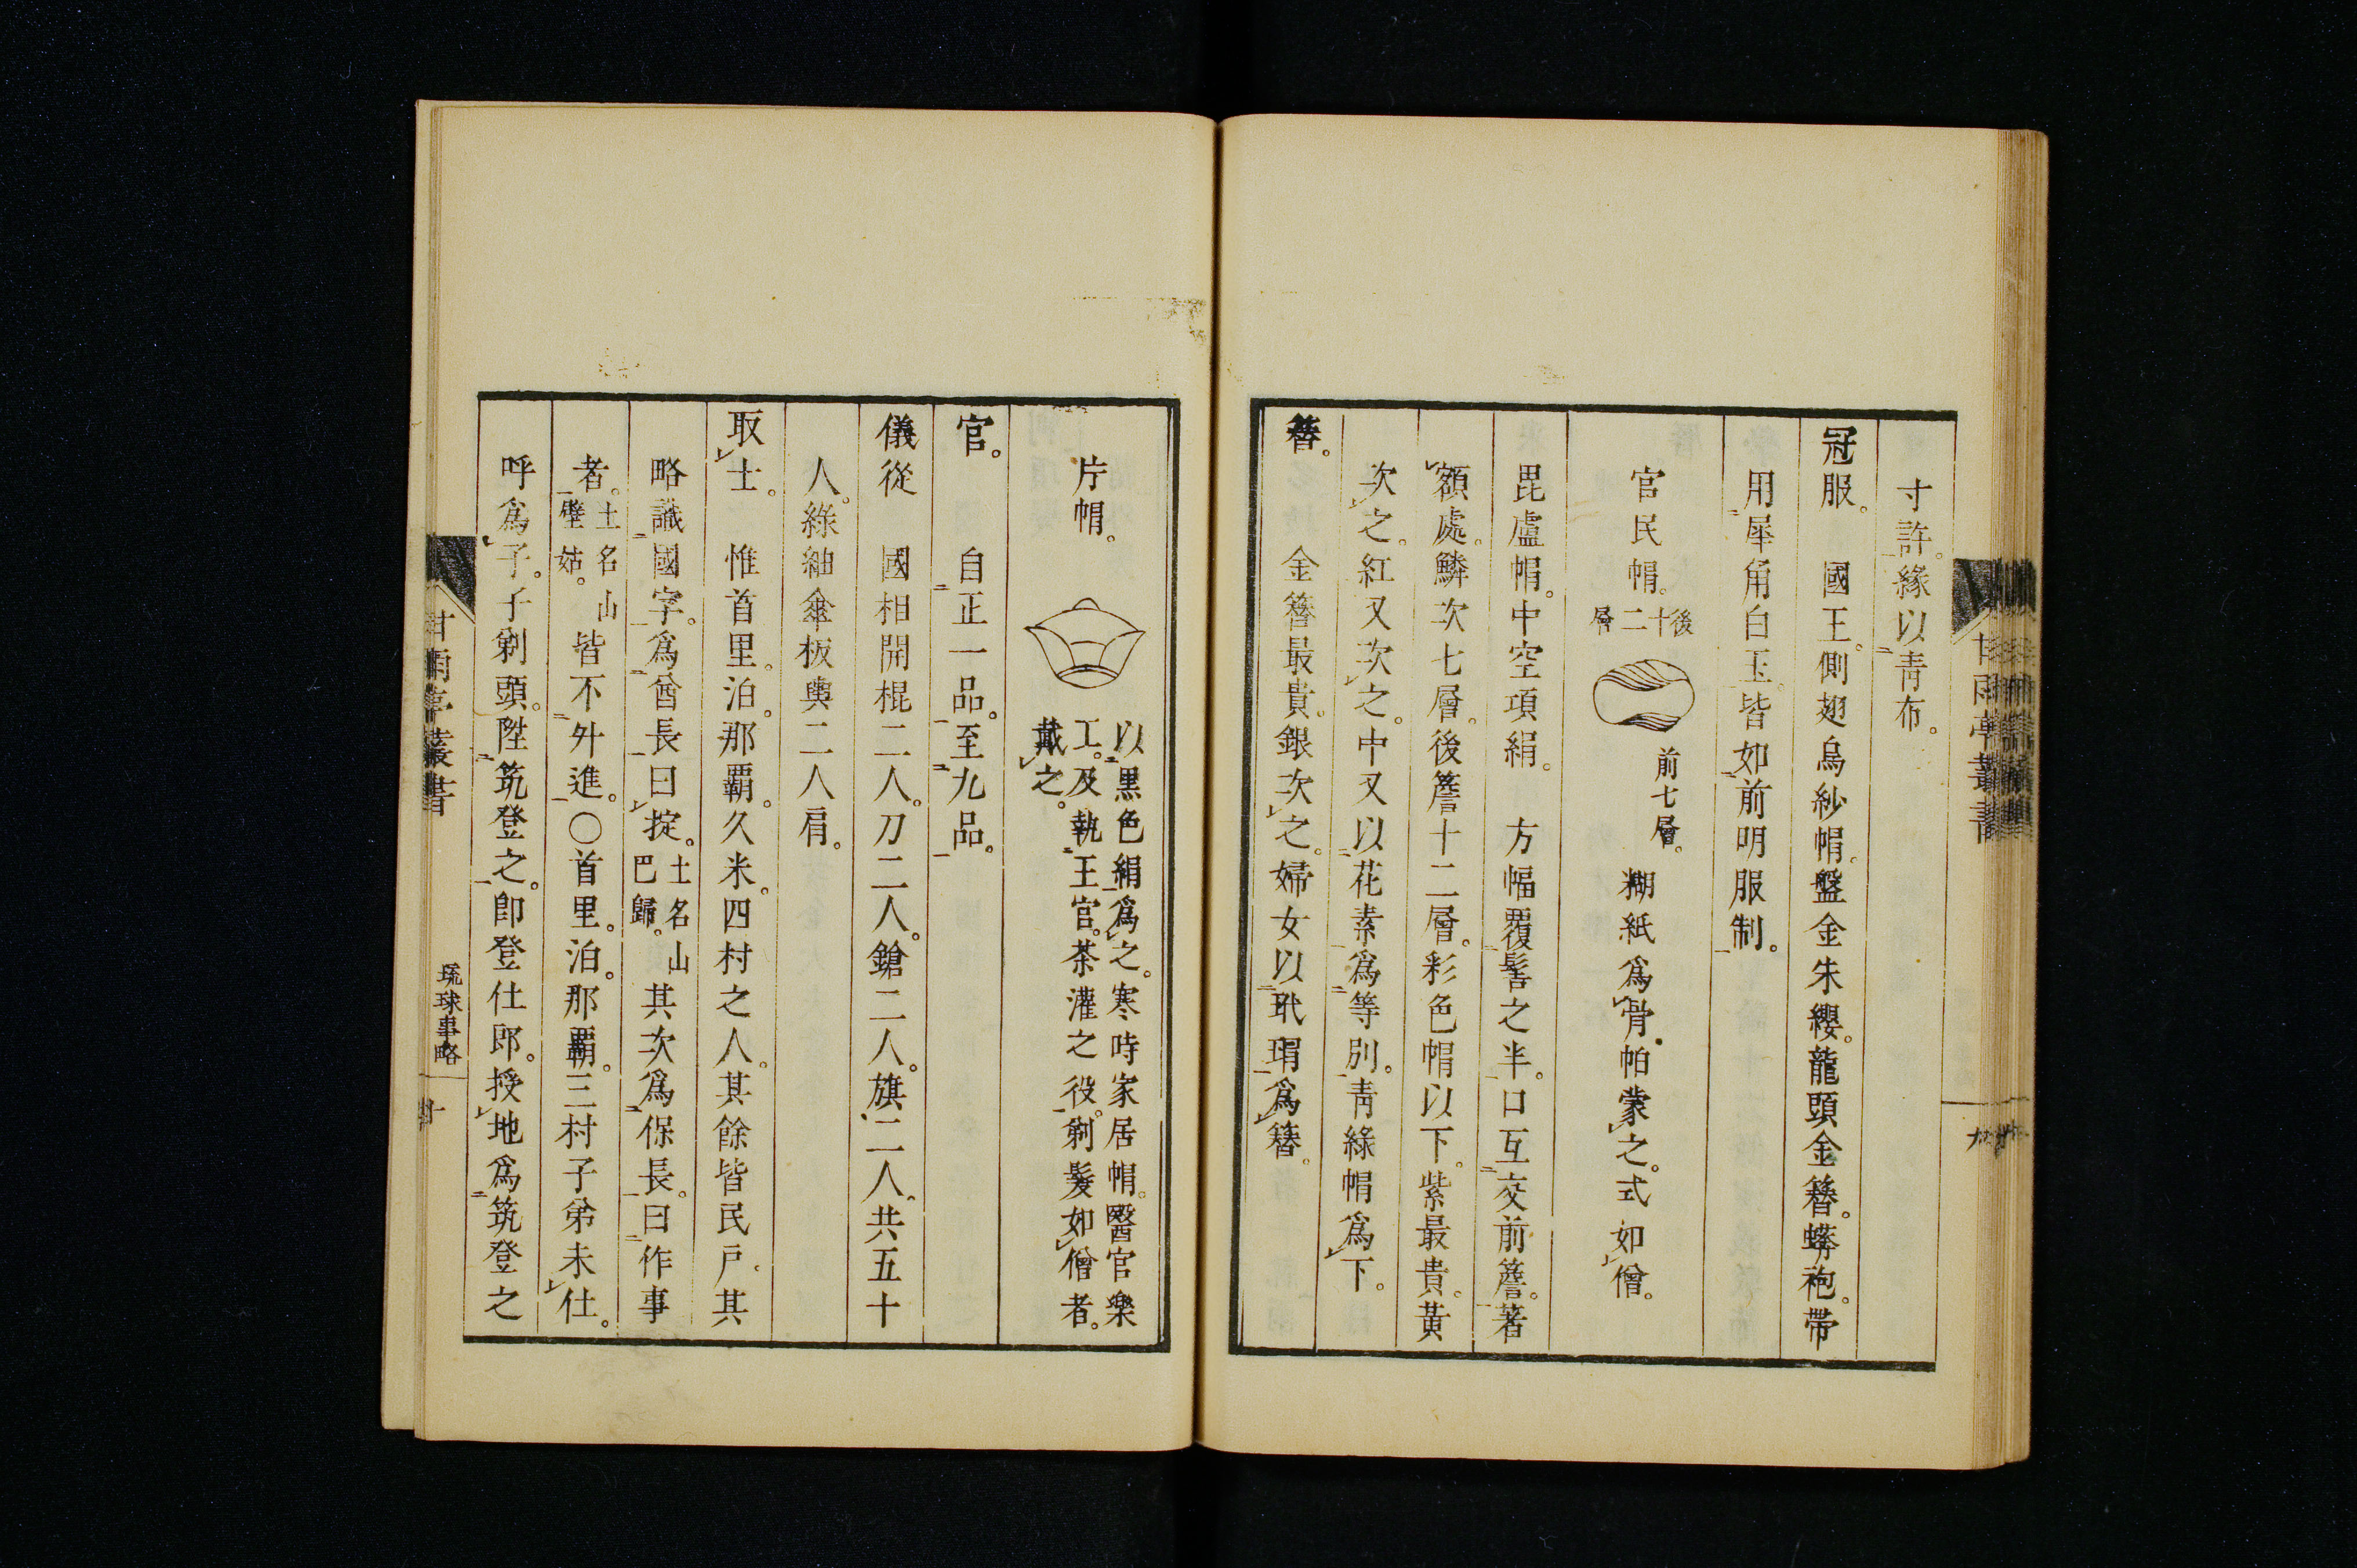 寸許。緣以靑布。
冠服。國王。側翅烏紗帽。盤金朱纓。龍頭金簪。蟒袍。帶
用犀角白玉。皆如前明服制。
官民帽。
後十二層
前七層。
糊紙爲骨。帕蒙之。式如僧。
毘盧帽。中空項絹。方幅覆髻之半。口互交前簷。著
額處。鱗次七層。後簷十二層。彩色帽以下。紫最貴。黃
次之。紅又次之。中又以花素爲等別。靑綠帽爲下。
簪。金簪最貴。銀次之。婦女以玳瑁爲簪。
甘雨亭叢書
片帽。
以黑色絹爲之。寒時家居帽。醫官樂
工。及執王官。茶灌之役。剃髮如僧者。
戴之。
官。自正一品。至九品。
儀從 國相開棍二人。刀二人。鎗二人。旗二人。共五十
人。綠紬傘板輿二人肩。
取士。惟首里。泊。那覇。久米。四村之人。其餘皆民戶。其
略識國字。爲酋長曰掟。土名山巴歸。其次爲保長。曰作事
者。土名山壁姑。皆不外進。〇首里。泊。那覇。三村子弟未仕。
呼爲子。子剃頭。陞筑登之。卽登仕郎。授地爲筑登之
甘雨亭叢書
琉球事略
十